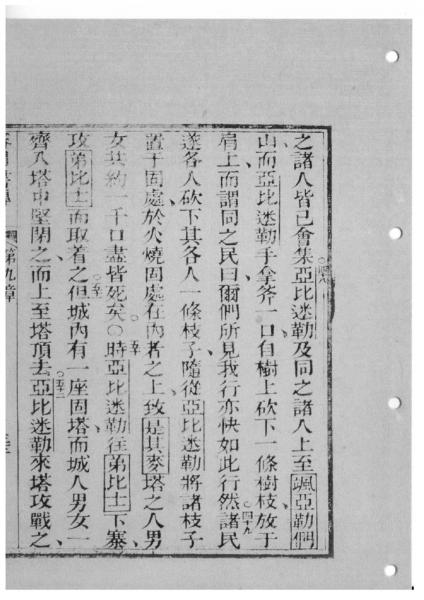 之諸人皆已會集亞比迷勒及同之諸人上至颯亞勒們
山而亞比迷勒手拿斧一口自樹上砍下一條樹枝放于
肩上而謂同之民曰爾們所見我行亦快如此行然諸民
遂各人砍下其各人一條枝子隨從亞比迷勒將諸枝子
置于固處於火燒固處在內者之上致是其麥塔之人男
女共約一千口盡皆死矣○時亞比迷勒往弟比士下寨
攻弟比士而取着之但城內有一座固塔而城人男女一
齊入塔中堅閉之而上至塔頂去亞比迷勒來塔攻戰之
第九章